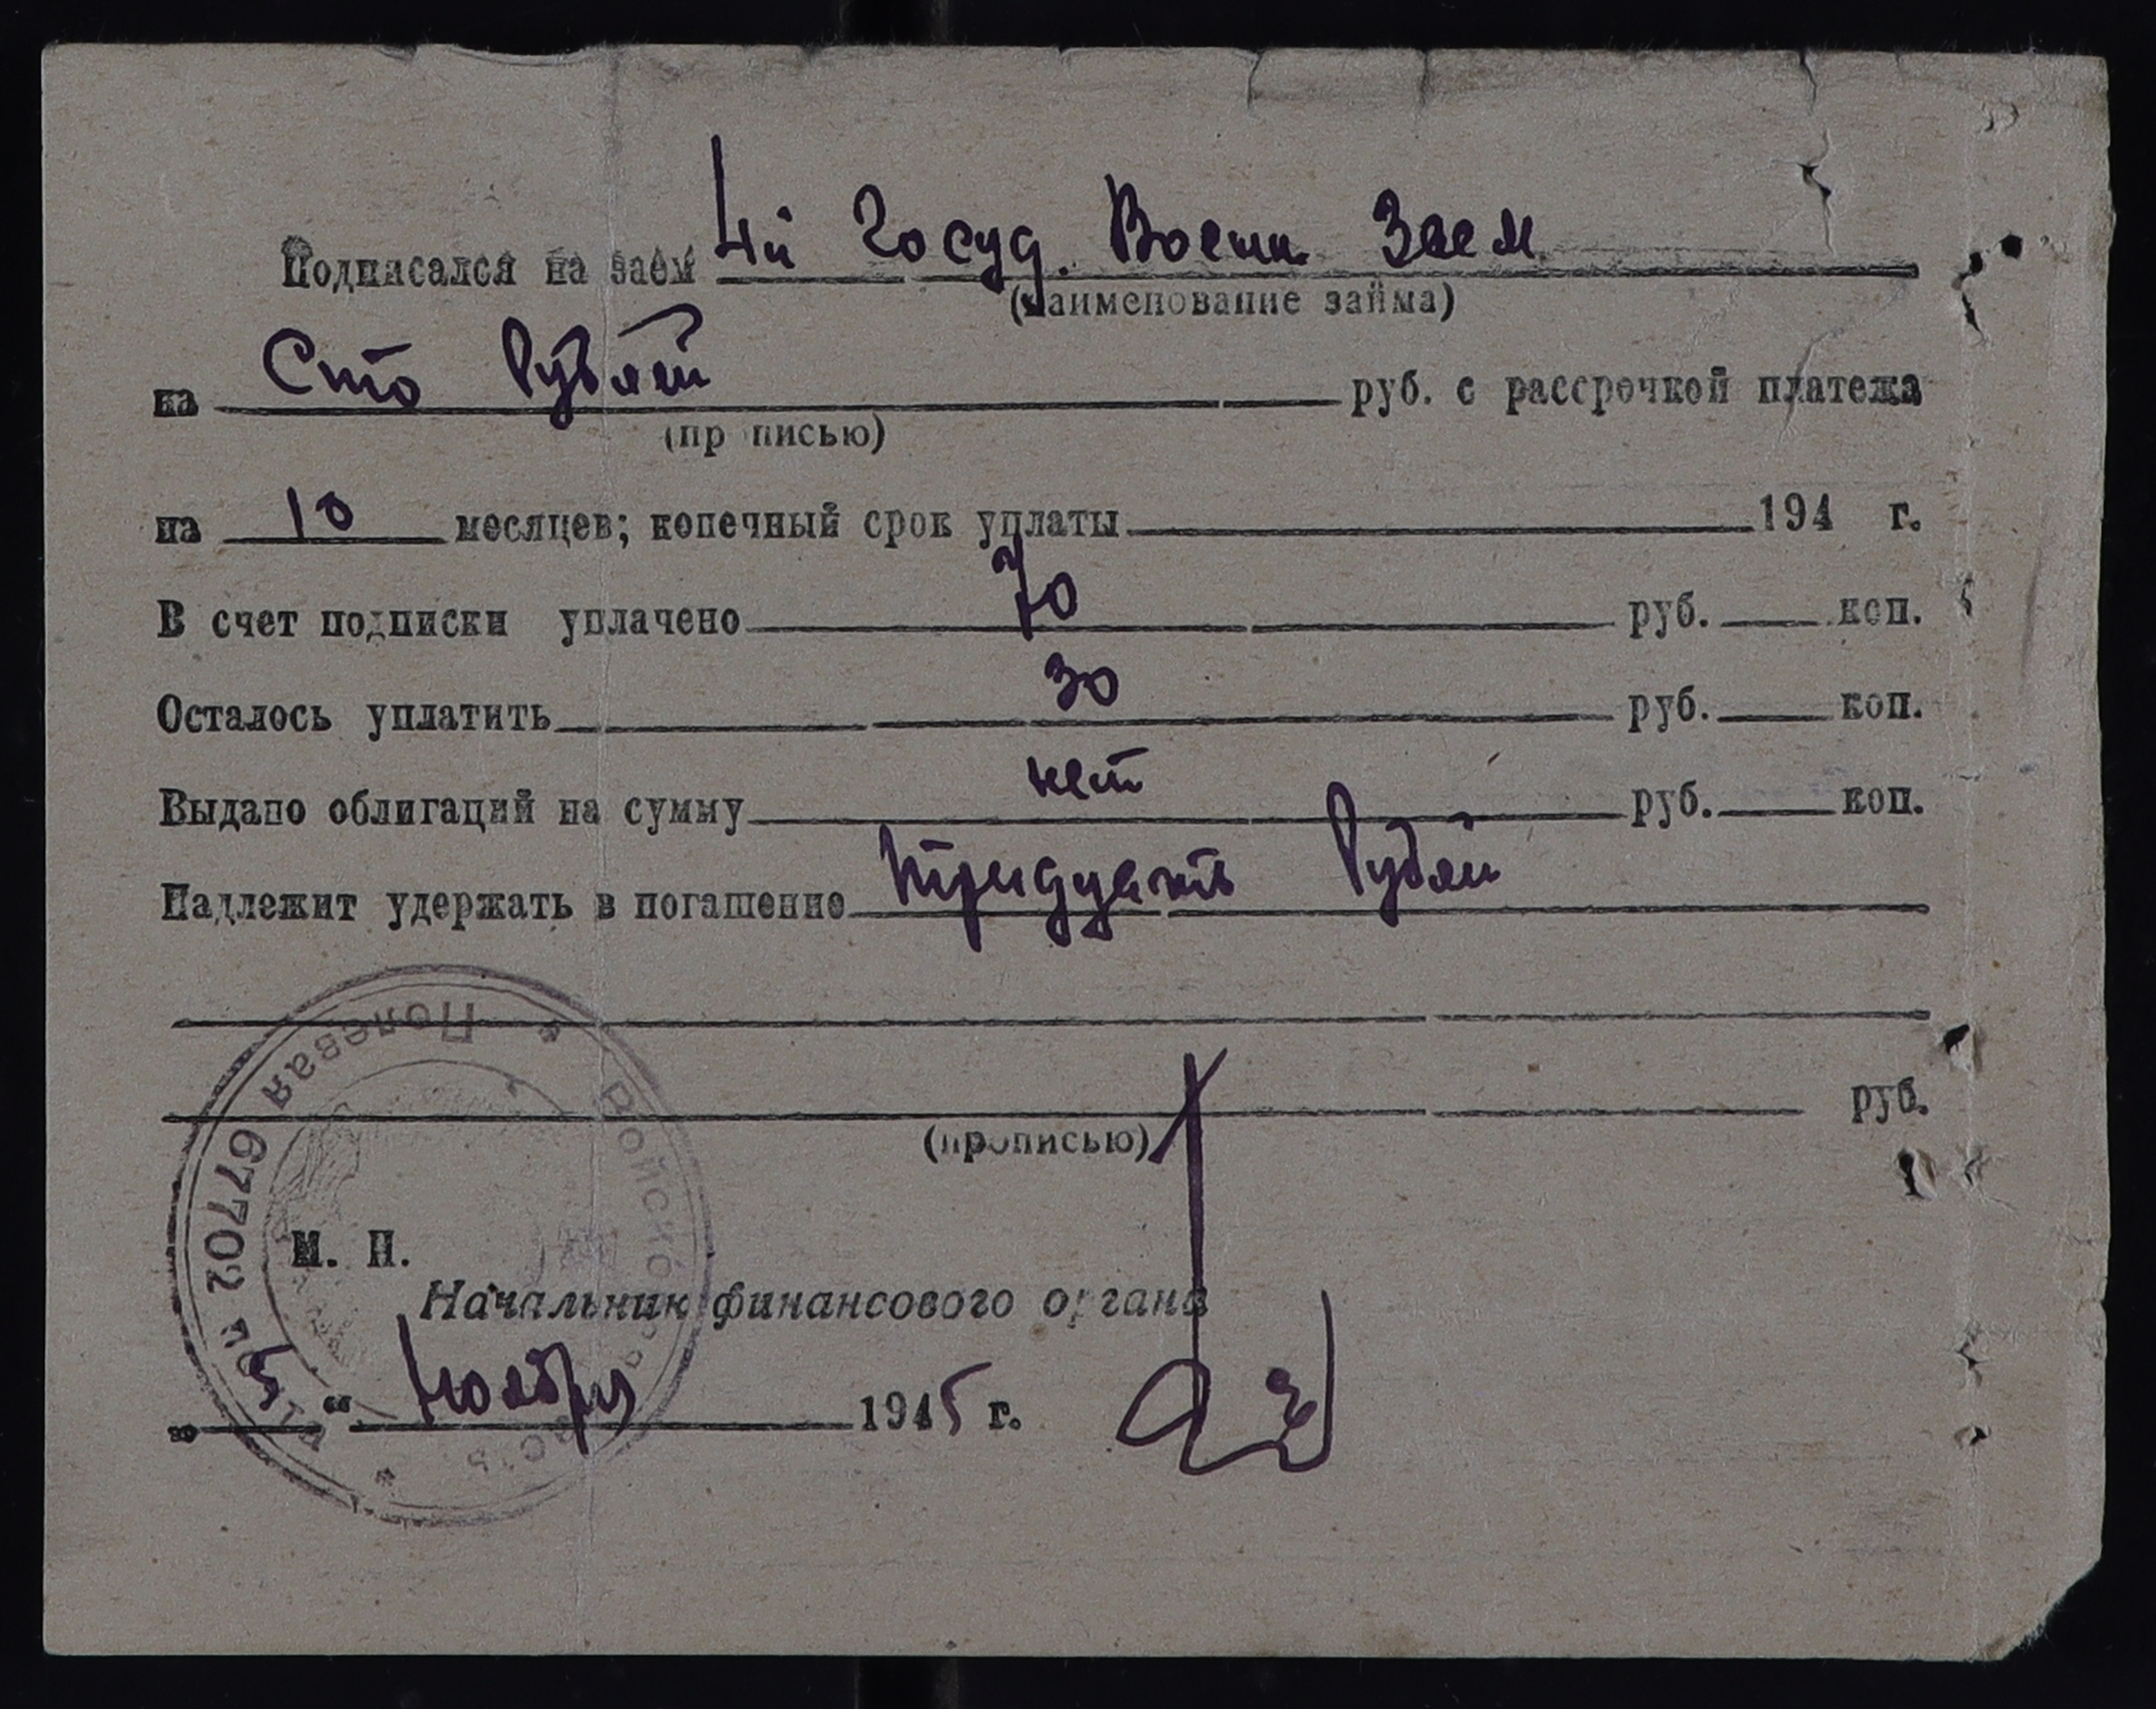 Подписался на заем 4й Госуд. Военн. Заем
(наименование займа)
на Сто Рублей руб. с рассрочкой платежа
(прописью)
на 10 месяцев; конечный срок уплаты 194 г.
В счет подписки уплачено 70 руб. коп.
Осталось уплатить 30 руб. коп.
Выдано облигаций на сумму нет руб. коп.
Надлежит удержать в погашение тридцать Рублей
руб.
(прописью)
М. П.
Начальник финансового органа
„ 5 “ Ноября 1945 г.
* Войсковая часть * Полевая 67702 почта